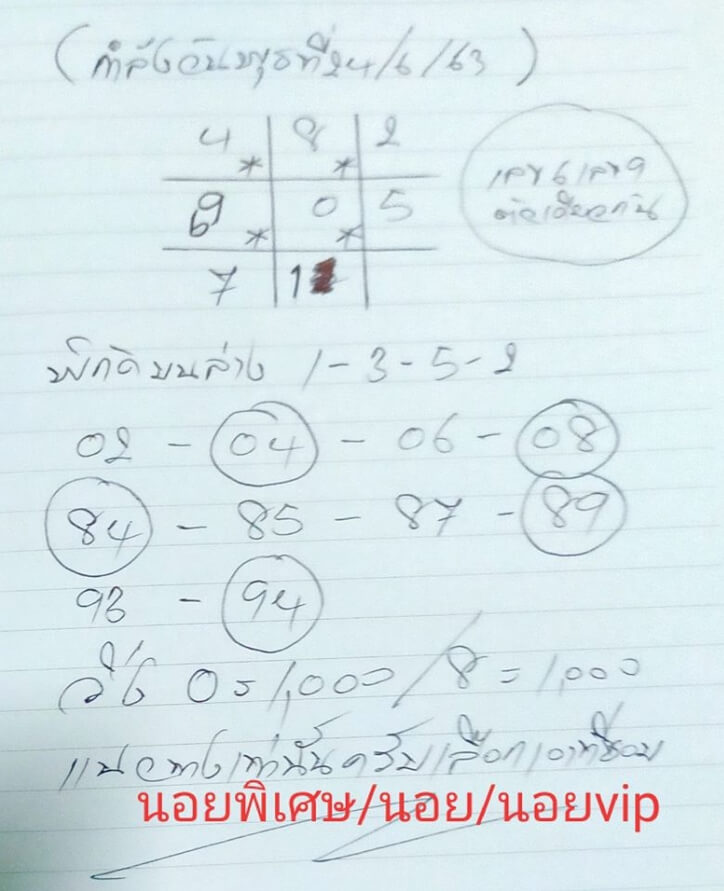 (กำลังวันพุธที่24/6/63)
4* 8* 2
เลข 6 เลข 9
9 0 5
ตัวเดียวกัน
6* *
7 1
พิกัดบนล่าง 1-3-5-2
02 - 04 - 06 - 08
84 - 85 - 87 - 89
93 - 94
วิ่ง 0=1,000/8=1,000
แนวทางเท่านั้นครับเลือกเอาที่ชอบ
นอยพิเศษ/นอย/นอยvip